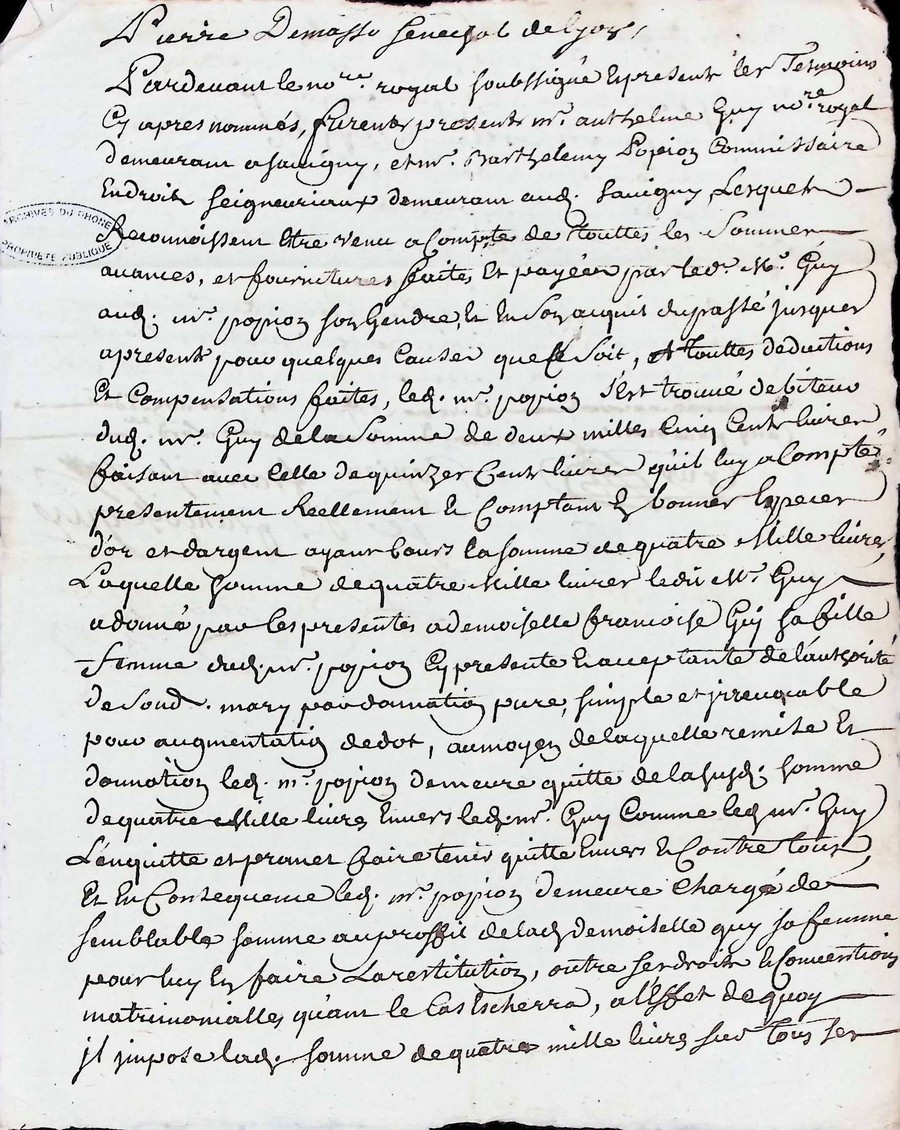 Pierre Demasso Senechal de Lyon,
Pardevant le no.re royal soubssigné Et presents les Tesmoins
Cy apres nommés, furent present m.r anthelme Guy no.re royal
demeurant a savigny, et m.r Barthelemy Popion Commissaire
En droits seigneuriaux demeurant aud. savigny, Lesquels
Reconnoissent Etre venu a Compte de Touttes les Sommes
avances, et fournitures faites Et payées par led. M.r Guy
aud. m.r popion son Gendre, Et En Son acquit du passé jusques
apresent pour quelques Causes que Ce Soit, Et touttes deductions
Et Compensations faites, led. m.r popion s'est trouvé debiteur
dud. m.r Guy de la Somme de deux milles Cinq Cents livres
faisant avec Celle de quinzes Cents livres qu'il luy a Compté
presentement Reellement Et Comptant En bonnes Especes
d'or et dargent ayant Cours la somme de quatre Mille livres,
Laquelle somme de quatre Mille livres ledit M.r Guy
a donné par Les presentes a demoiselle francoise Guÿ sa fille
femme dud. m.r popion Cy presente Et acceptante de l'authorité
de Soud. mary par donnation pure, simple et irrevocable
pour augmentation de dot, au moyen de laquelle remise Et
donnation led. m.r popion demeure quitte de la susd. somme
de quatre Mille livres Envers led. m.r Guy Comme led. m.r Guy
L'en quitte et promet faire tenir quitte Envers Et Contre tous,
Et En Consequence led. m.r popion demeure Chargé de
semblable somme au proffit de lad. demoiselle guy sa femme
pour luy En faire La restitution, outre ses droits Et Conventions
matrimonialles quant le Cas Escherra, a l'Effet de quoy
jl jmpose lad. somme de quatre mille livres sur tous ses
ARCHIVES DU RHONE
PROPRIETE PUBLIQUE